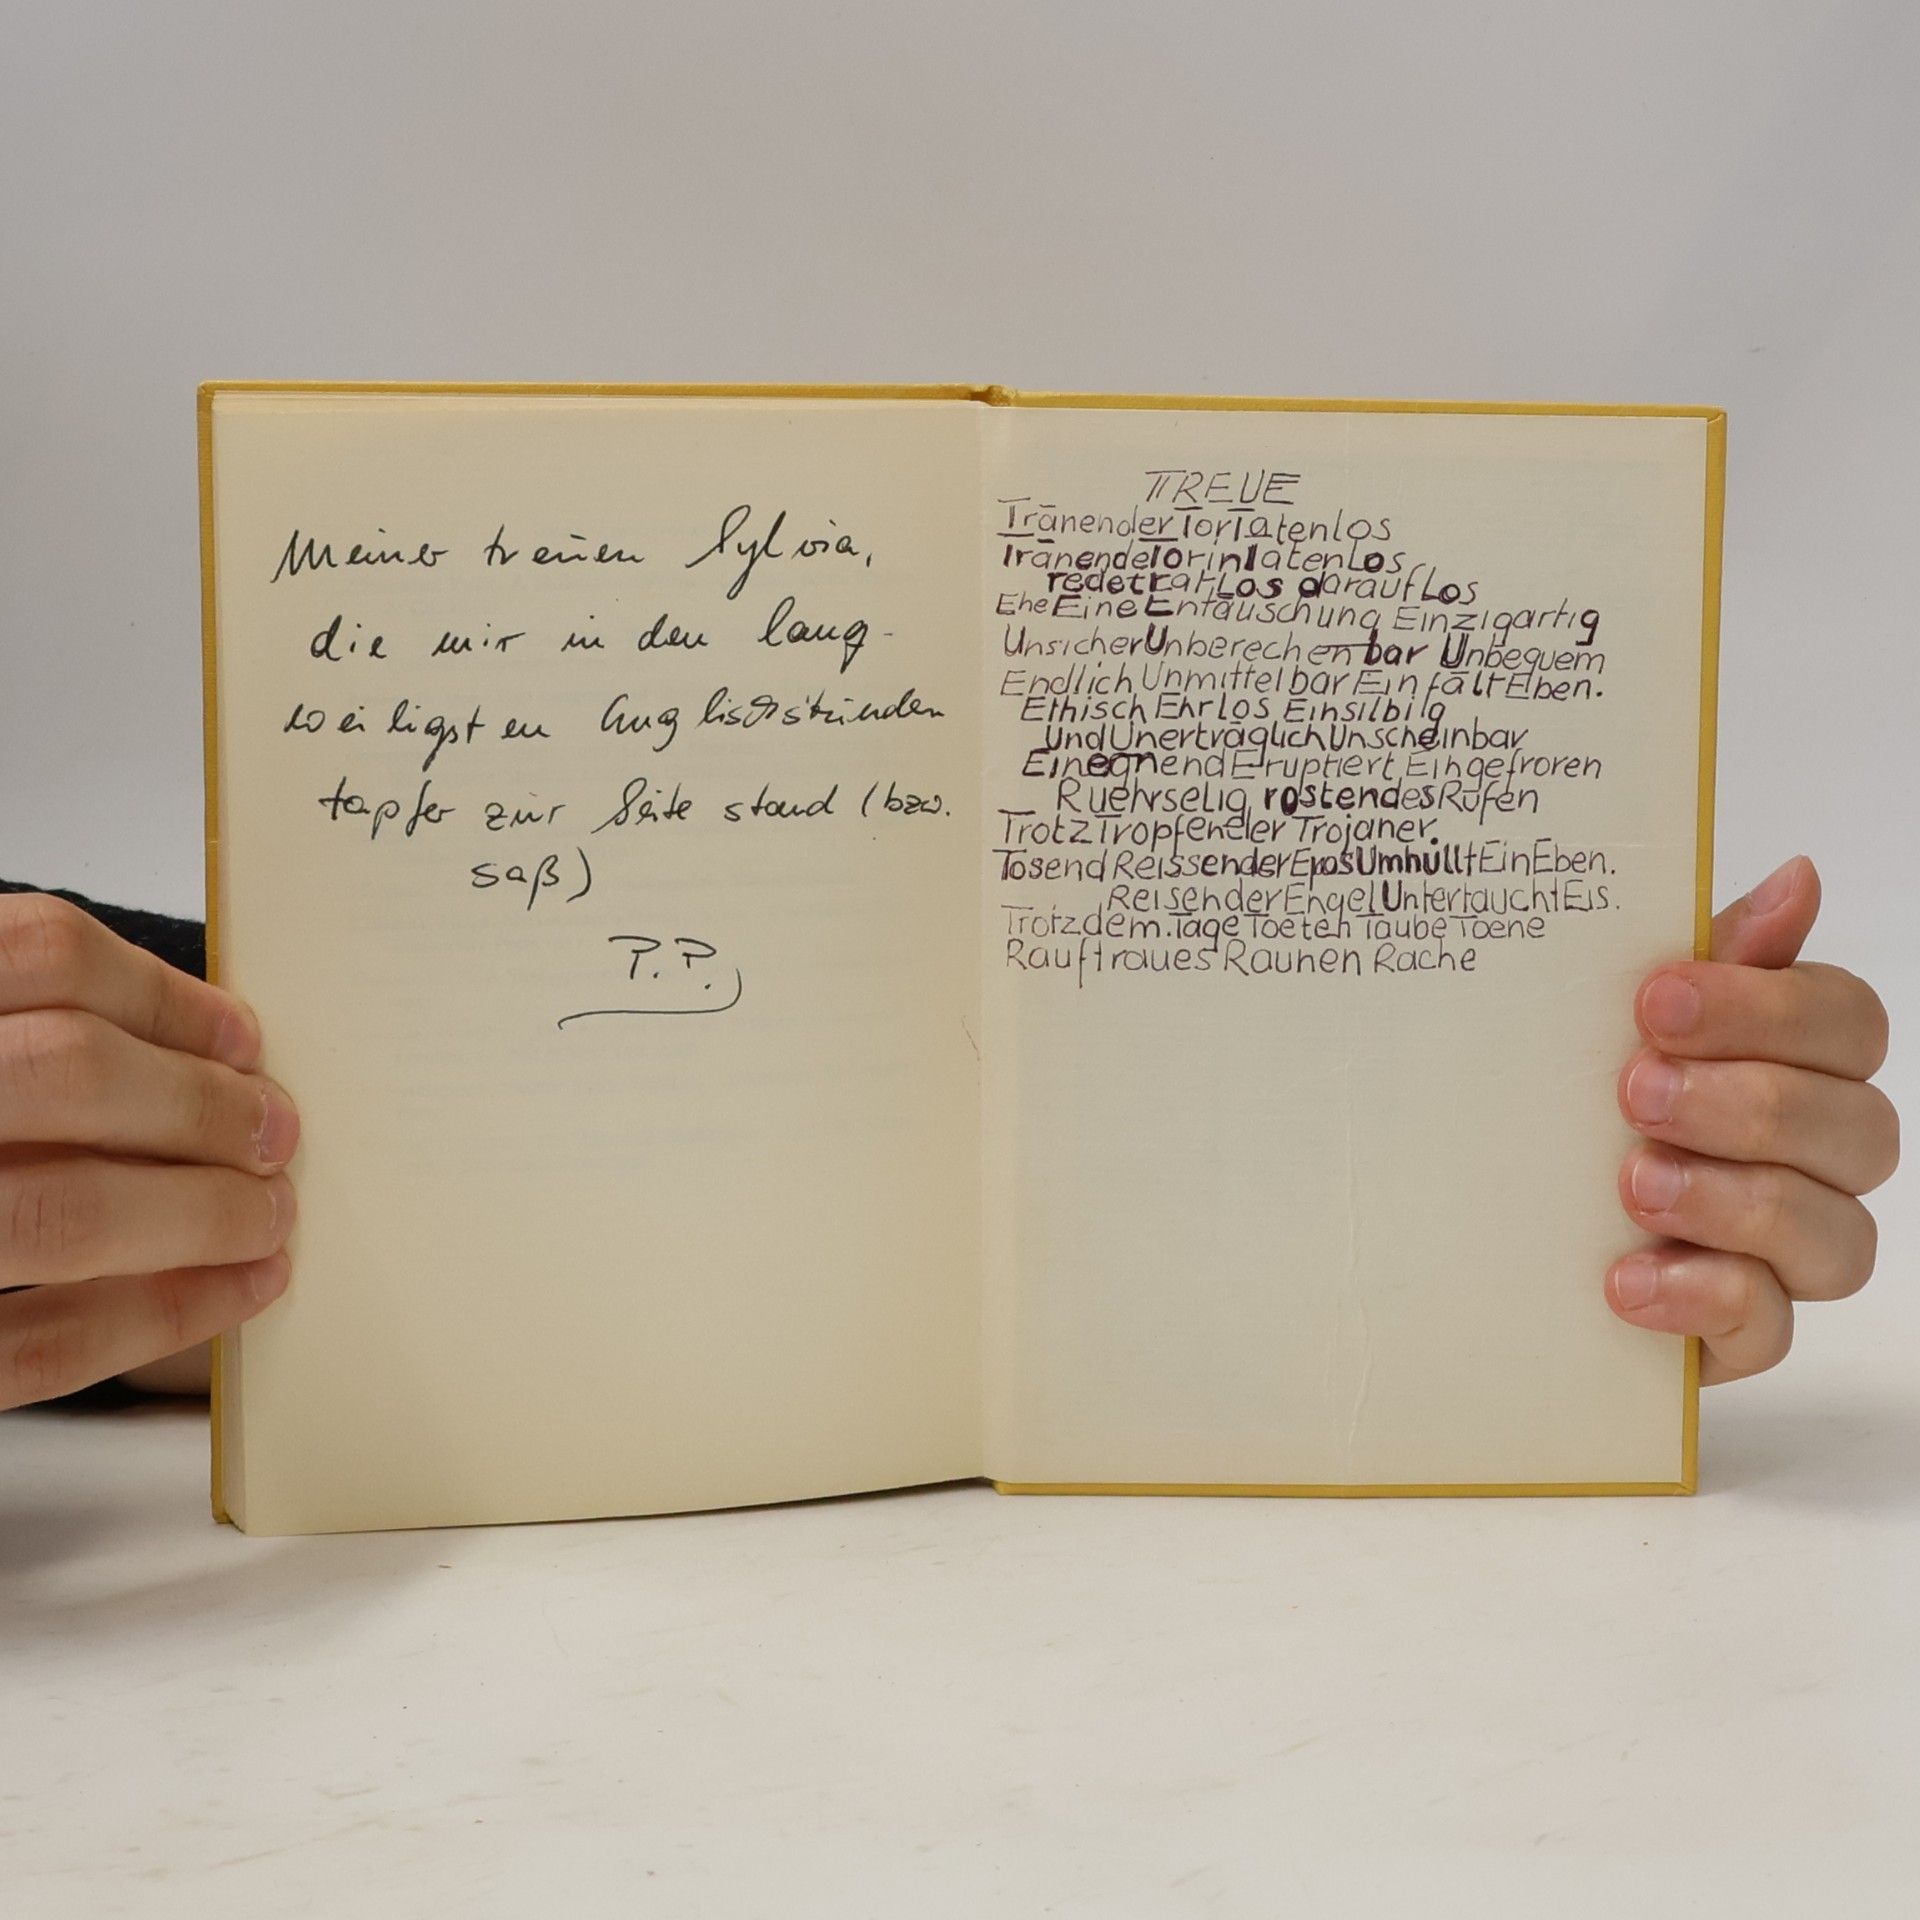 Meiner treuen Sylvia,
die mir in den lang-
weiligsten Englischstunden
tapfer zur Seite stand (bzw.
saß)
P.P.
TREUE
TränenderTorTatenlos
TränendeTorinTatenLos
redet ratLos daraufLos
Ehe Eine Entäuschung Einzigartig
UnsicherUnberechenbar Unbequem
Endlich Unmittelbar EinfältEben.
Ethisch EhrLos Einsilbig
Und Unerträglich Unscheinbar
Eruptiert Eingefroren
Ruehrselig rostendes Rufen
Trotz Tropfender Trojaner.
Tosend Reissender Eros Umhüllt EinEben.
Reisender Engel Untertaucht Eis.
Trotzdem. Tage Toeten Taube Toene
Rauftraues Raunen Rache